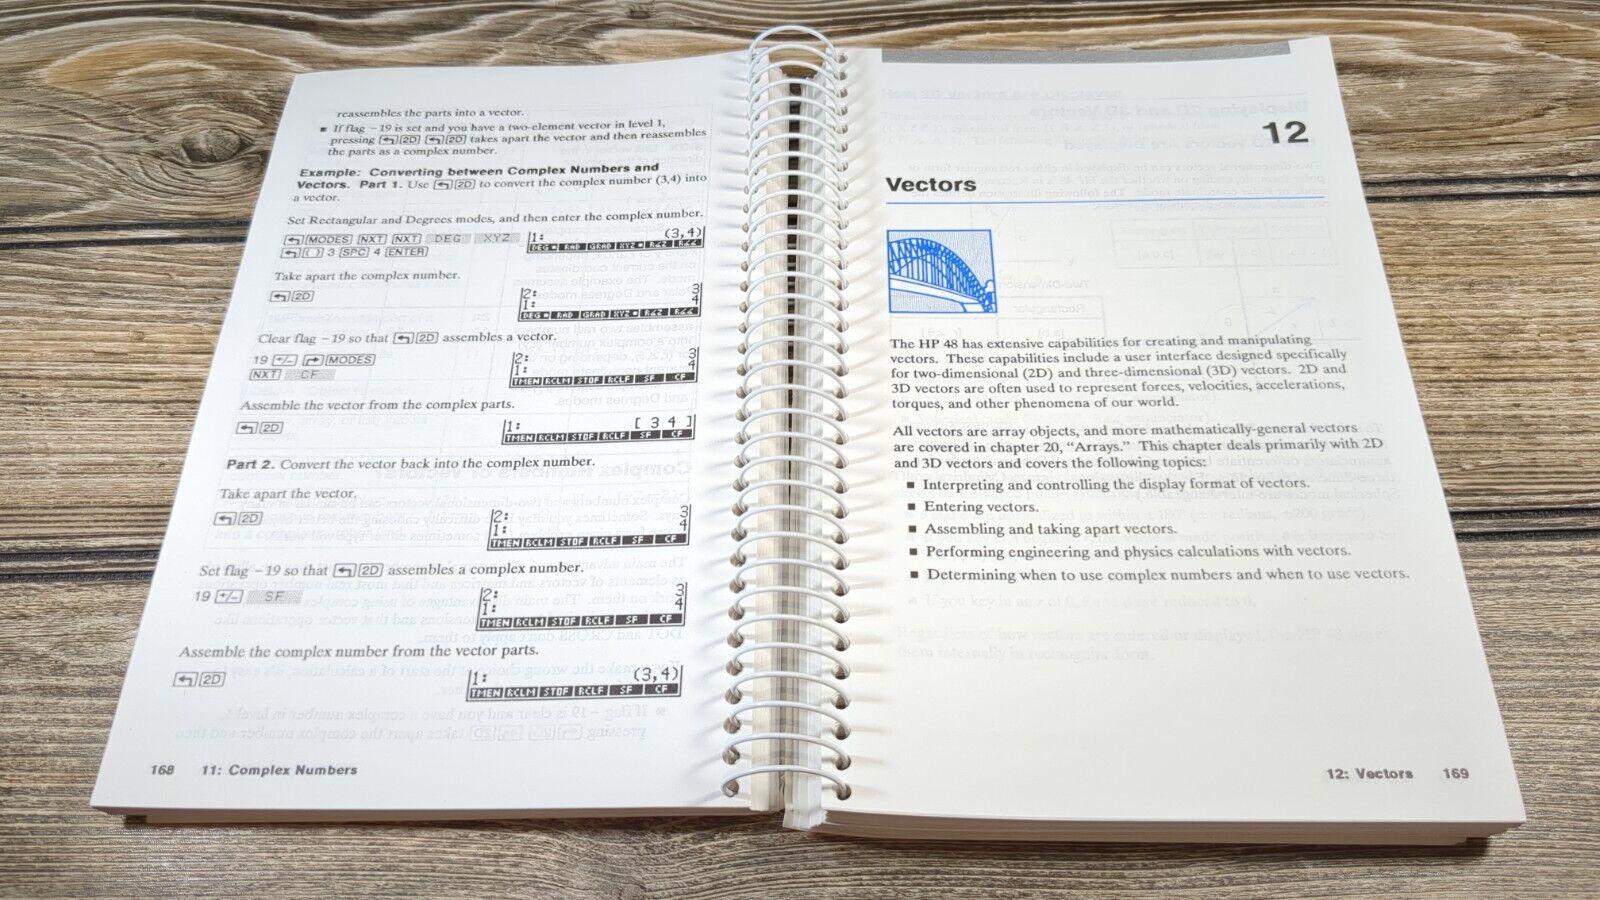 reassembles the parts into a vector.
■ If flag −19 is set and you have a two-element vector in level 1,
pressing [↰] [2D] [↰] [2D] takes apart the vector and then reassembles
the parts as a complex number.
Example: Converting between Complex Numbers and
Vectors. Part 1. Use [↰] [2D] to convert the complex number (3,4) into
a vector.
Set Rectangular and Degrees modes, and then enter the complex number.
[↰] [MODES] [NXT] [NXT] DEG XYZ
[↰] [( )] 3 [SPC] 4 [ENTER]
1: (3,4)
DEG ▪ RAD GRAD XYZ ▪ R∡Z R∡∡
Take apart the complex number.
[↰] [2D]
2: 3
1: 4
DEG ▪ RAD GRAD XYZ ▪ R∡Z R∡∡
Clear flag −19 so that [↰] [2D] assembles a vector.
19 [+/−] [↱] [MODES]
[NXT] CF
2: 3
1: 4
TMEN RCLM STOF RCLF SF CF
Assemble the vector from the complex parts.
[↰] [2D]
1: [ 3 4 ]
TMEN RCLM STOF RCLF SF CF
Part 2. Convert the vector back into the complex number.
Take apart the vector.
[↰] [2D]
2: 3
1: 4
TMEN RCLM STOF RCLF SF CF
Set flag −19 so that [↰] [2D] assembles a complex number.
19 [+/−] SF
2: 3
1: 4
TMEN RCLM STOF RCLF SF CF
Assemble the complex number from the vector parts.
[↰] [2D]
1: (3,4)
TMEN RCLM STOF RCLF SF CF
168 11: Complex Numbers
12
Vectors
The HP 48 has extensive capabilities for creating and manipulating
vectors. These capabilities include a user interface designed specifically
for two-dimensional (2D) and three-dimensional (3D) vectors. 2D and
3D vectors are often used to represent forces, velocities, accelerations,
torques, and other phenomena of our world.
All vectors are array objects, and more mathematically-general vectors
are covered in chapter 20, “Arrays.” This chapter deals primarily with 2D
and 3D vectors and covers the following topics:
■ Interpreting and controlling the display format of vectors.
■ Entering vectors.
■ Assembling and taking apart vectors.
■ Performing engineering and physics calculations with vectors.
■ Determining when to use complex numbers and when to use vectors.
12: Vectors 169